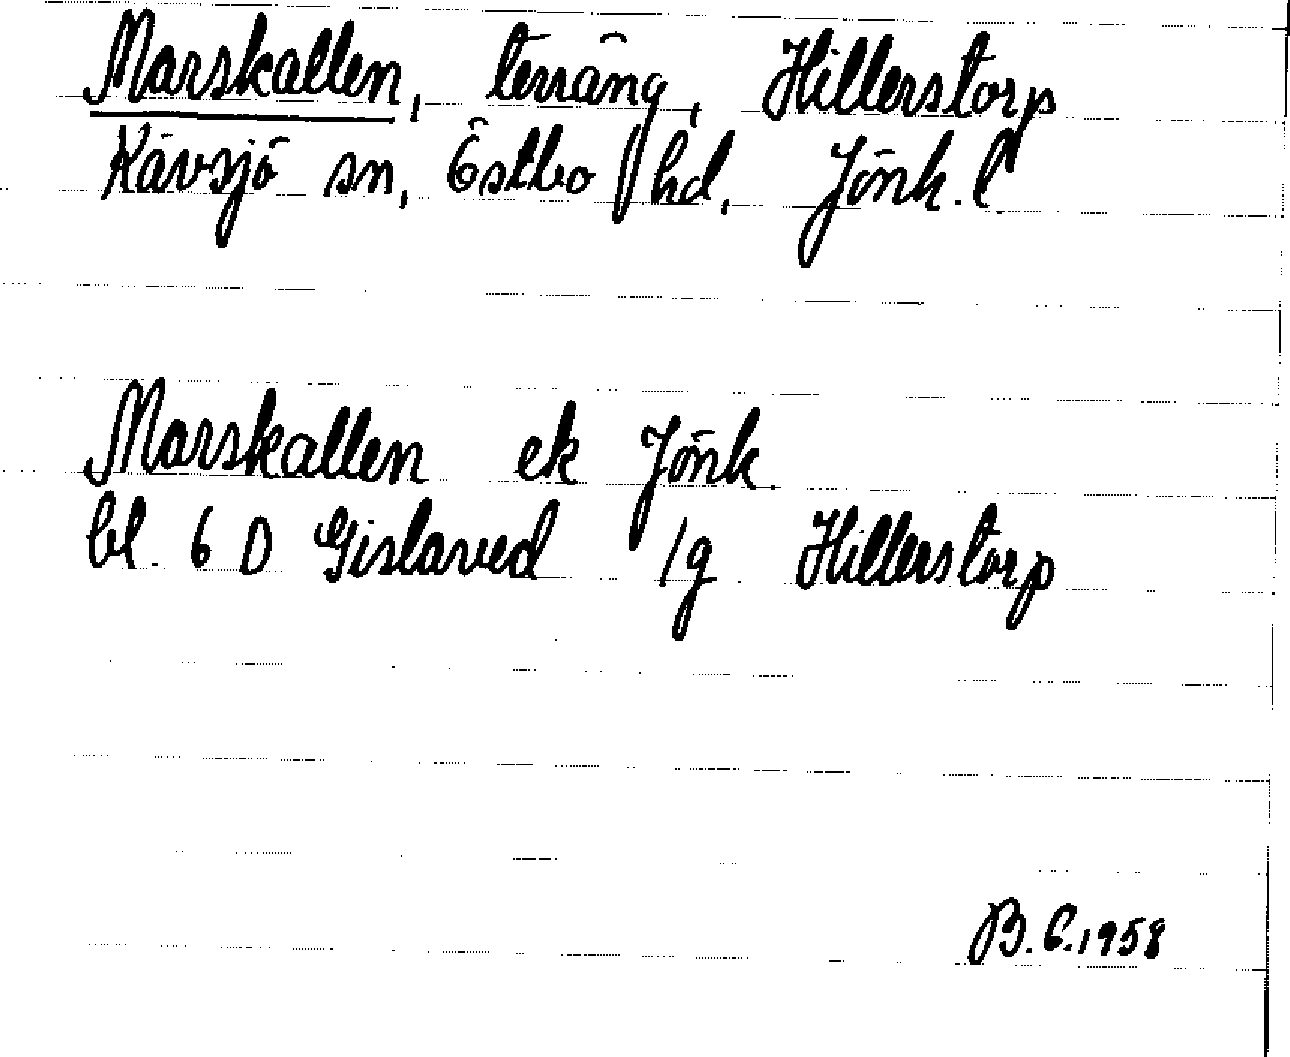 Marskallen, terräng, Hillerstorp
Kävsjö sn, Östbo hd, Jönk. l
Marskallen ek Jönk.
bl. 6 D Gislaved 1g Hillerstorp
B.E.1958